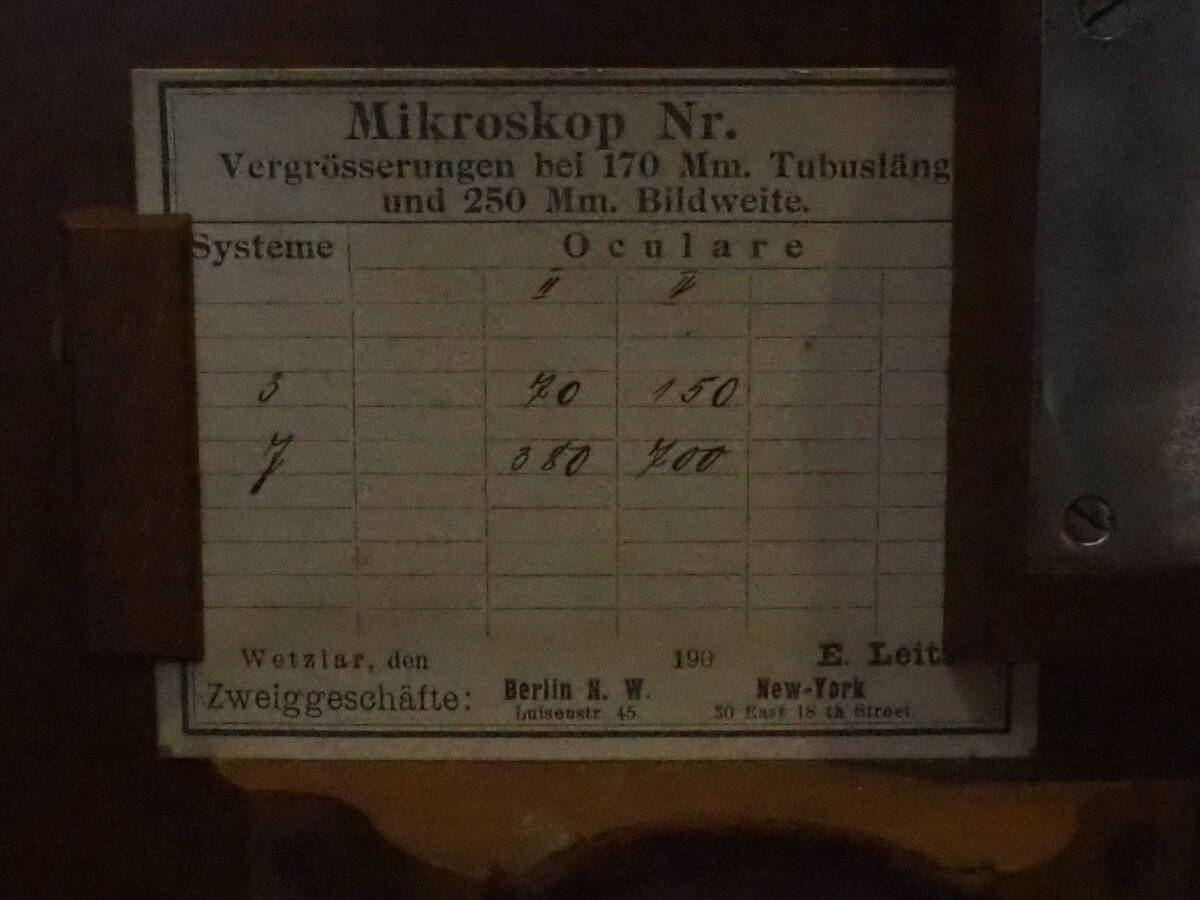 Mikroskop Nr.
Vergrösserungen bei 170 Mm. Tubusläng
und 250 Mm. Bildweite.
Systeme Oculare
II IV
3 70 150
7 380 700
Wetzlar, den 190 E. Leit
Zweiggeschäfte: Berlin N. W. New-York
Luisenstr. 45. 30 East 18 th Street.